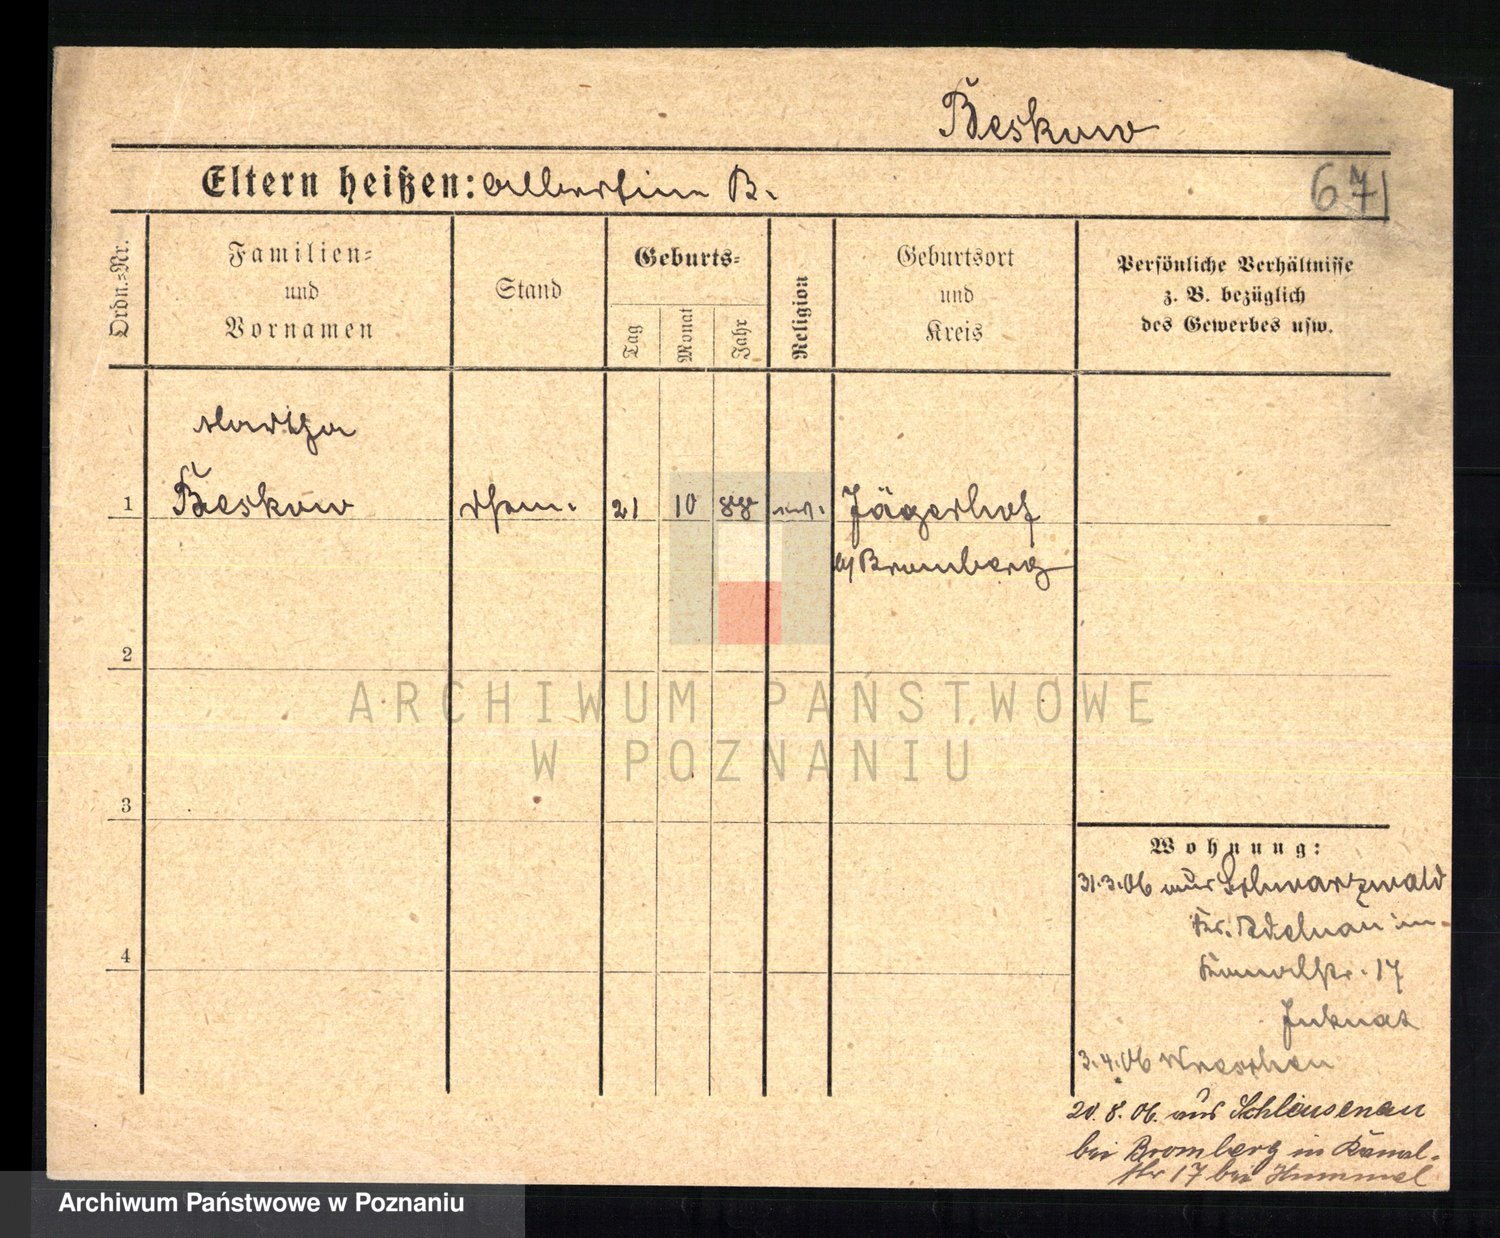 Beskow
Eltern heißen: Albertine B.
671
Ordn.-Nr.
Familien-
und
Vornamen
Stand
Geburts-
Tag
Monat
Jahr
Religion
Geburtsort
und
Kreis
Persönliche Verhältnisse
z. B. bezüglich
des Gewerbes usw.
Martha
1 Beskow 21 10 88 Jägerhof
Bromberg
2
3
4
Wohnung:
31.3.06 aus Schwarzwald
Kr. Adelnau in
Kanalstr. 17
3.4.06 Wreschen
20.8.06. aus Schleusenau
bei Bromberg in Kanal-
str 17 bei Hummel
ARCHIWUM PAŃSTWOWE
W POZNANIU
Archiwum Państwowe w Poznaniu